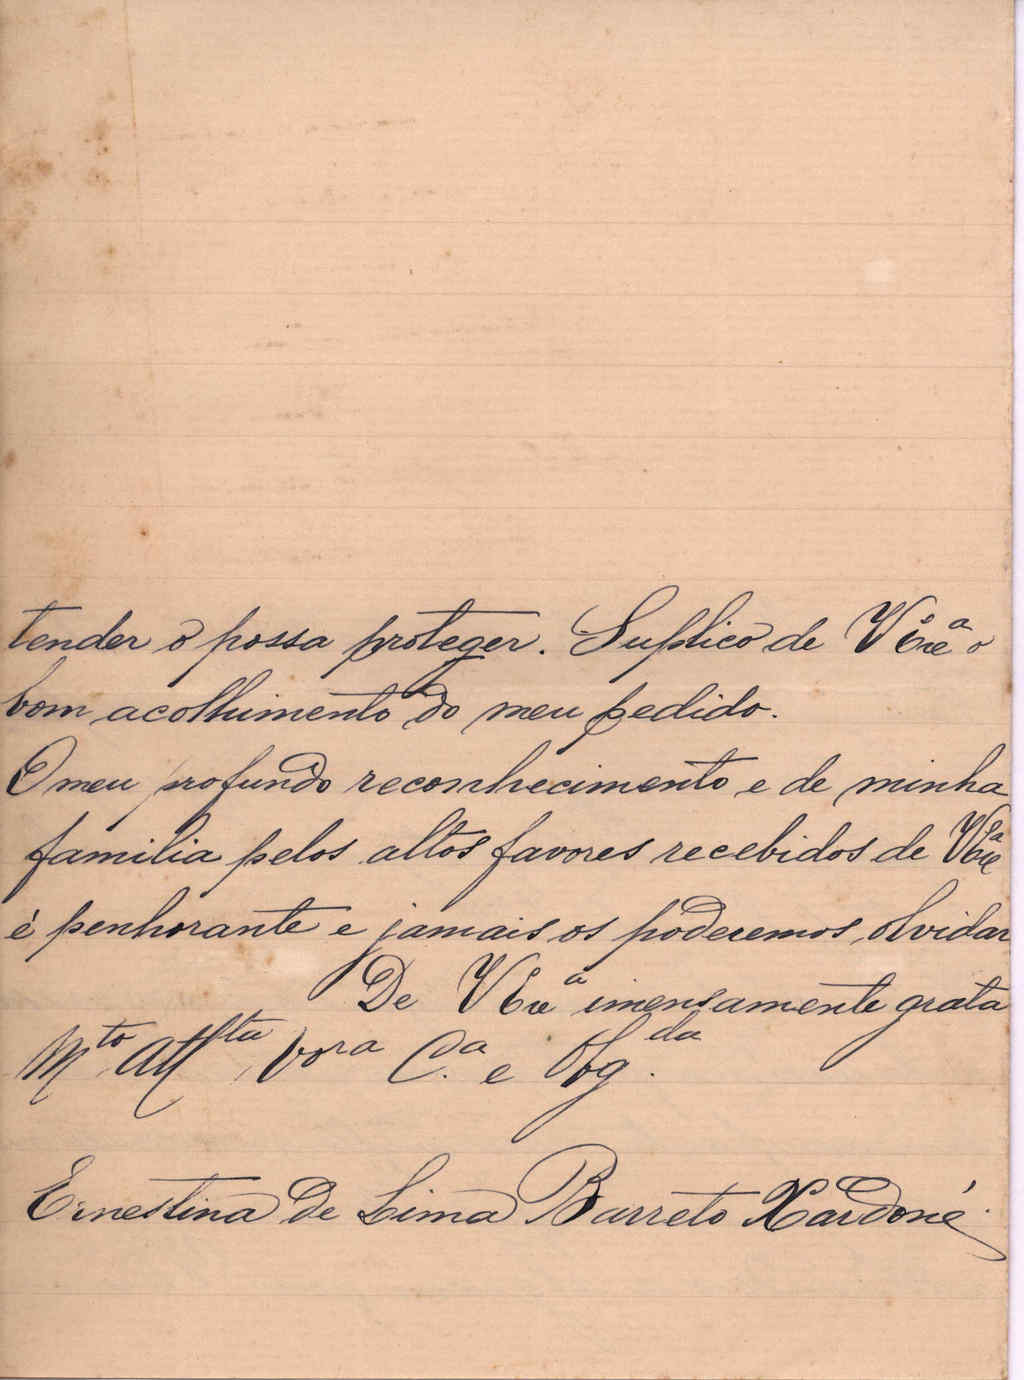 tender o possa proteger. Suplico de V Exª o
bom acolhimento do meu pedido.
O meu profundo reconhecimento e de minha
familia pelos altos favores recebidos de V Exª
é penhorante e jamais os poderemos olvidar
De V Exª imensamente grata
Mto Attta Vora Cª. e Obgda.
Ernestina de Lima Barreto Xardoné